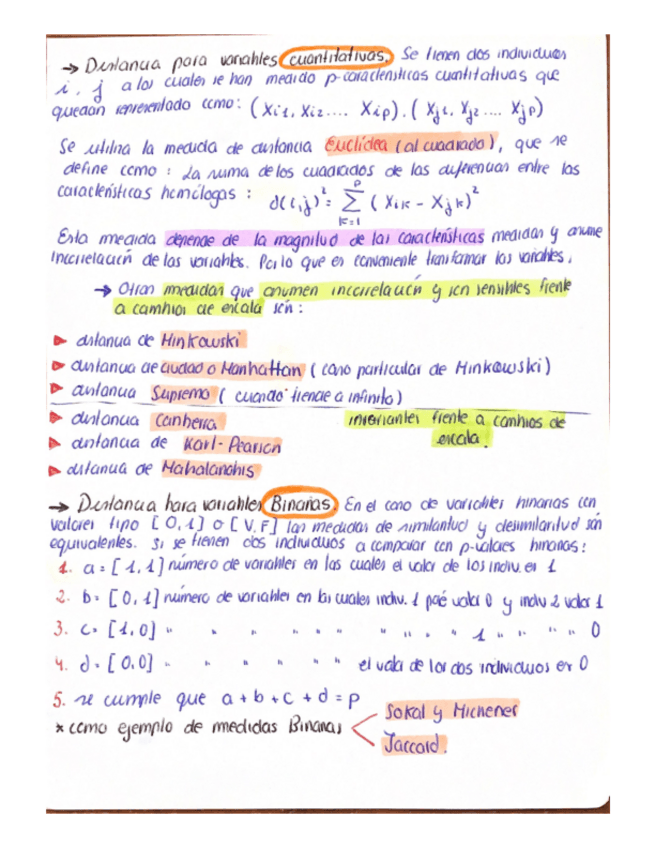 → Distancia para variables cuantitativas. Se tienen dos individuos
i, j a los cuales se han medido p-características cuantitativas que
quedan representado como: (Xi1, Xi2 .... Xip). (Xj1, Xj2 .... Xjp)
Se utiliza la medida de distancia Euclídea (al cuadrado), que se
define como: La suma de los cuadrados de las diferencias entre las
características homólogas: d(i,j)² = Σ (Xik - Xjk)²
p
k=1
Esta medida depende de la magnitud de las características medidas y asume
incorrelación de las variables. Por lo que es conveniente transformar las variables.
→ Otras medidas que asumen incorrelación y son sensibles frente
a cambios de escala són:
▶ distancia de Minkowski
▶ distancia de ciudad o Manhattan (caso particular de Minkowski)
▶ distancia Supremo (cuando tiende a infinito)
▶ distancia Canberra invariantes frente a cambios de
▶ distancia de Karl-Pearson escala.
▶ distancia de Mahalanobis
→ Distancia para variables Binarias. En el caso de variables binarias con
valores tipo [0,1] o [V,F] las medidas de similaritud y desimilaritud són
equivalentes. Si se tienen dos individuos a comparar con p-valores binarios:
1. a = [1,1] número de variables en las cuales el valor de los indiv. es 1
2. b = [0,1] número de variables en las cuales indiv. 1 valor 0 y indiv 2 valor 1
3. c = [1,0] " " " " " " " " " 1 " " " " 0
4. d = [0,0] " " " " " el valor de los dos individuos es 0
5. se cumple que a + b + c + d = p
* como ejemplo de medidas Binarias < Sokal y Michener
Jaccard.